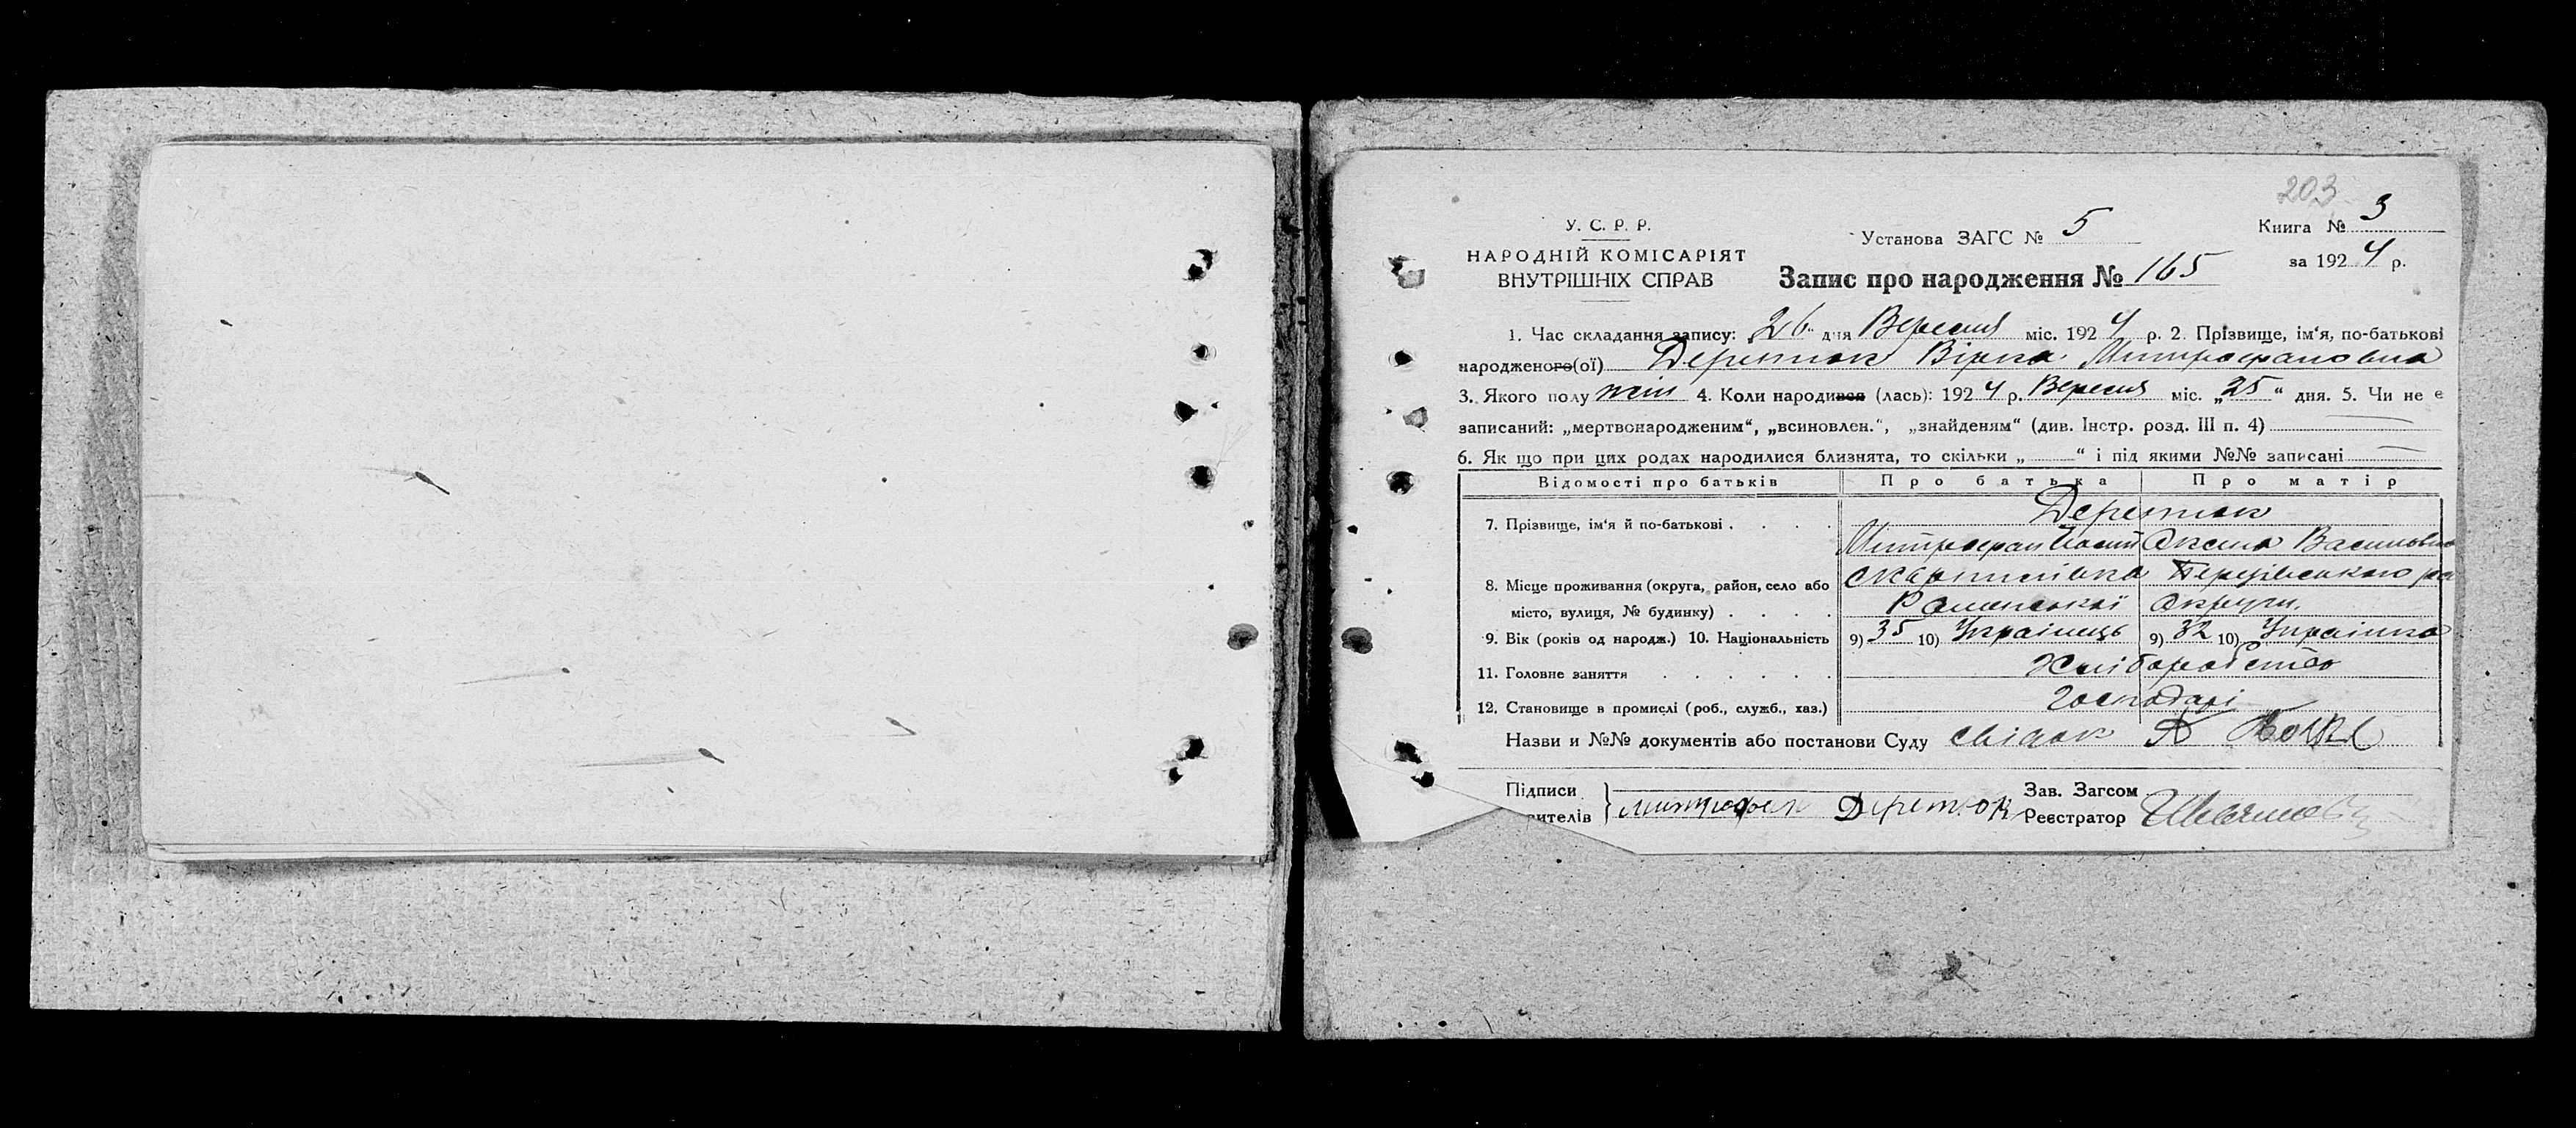 203
У. С. Р. Р.
НАРОДНІЙ КОМІСАРІЯТ
ВНУТРІШНІХ СПРАВ
Установа ЗАГС № 5
Книга № 3
за 1924 р.
Запис про народження № 165
1. Час складання запису: „26“ дня Вересня міс. 1924 р. 2. Прізвище, ім‘я, по-батькові
народженого(ої) Деретюк Вірка Митрофановна
3. Якого полу жін 4. Коли народився (лась): 1924 р. Вересня міс. „25“ дня. 5. Чи не є
записаний: „мертвонародженим“, „всиновлен.“, „знайденям“ (див. Інстр. розд. III п. 4)
6. Як що при цих родах народилися близнята, то скільки „ “ і під якими №№ записані
Відомості про батьків Про батька Про матір
7. Прізвище, ім‘я й по-батькові . . . . Деретюк
Митрофан Оксана Васильовна
8. Місце проживання (округа, район, село або
місто, вулиця, № будинку) . . . . Роменської Округи.
9. Вік (років од народж.) 10. Національність 9) 35 10) Українець 9) 32 10) Українка
11. Головне заняття . . . . . . Хліборобство
12. Становище в промислі (роб., служб., хаз.) Господарі
Назви и №№ документів або постанови Суду свідок
Підписи
вителів } Митрофан Деретюк
Зав. Загсом
Реєстратор